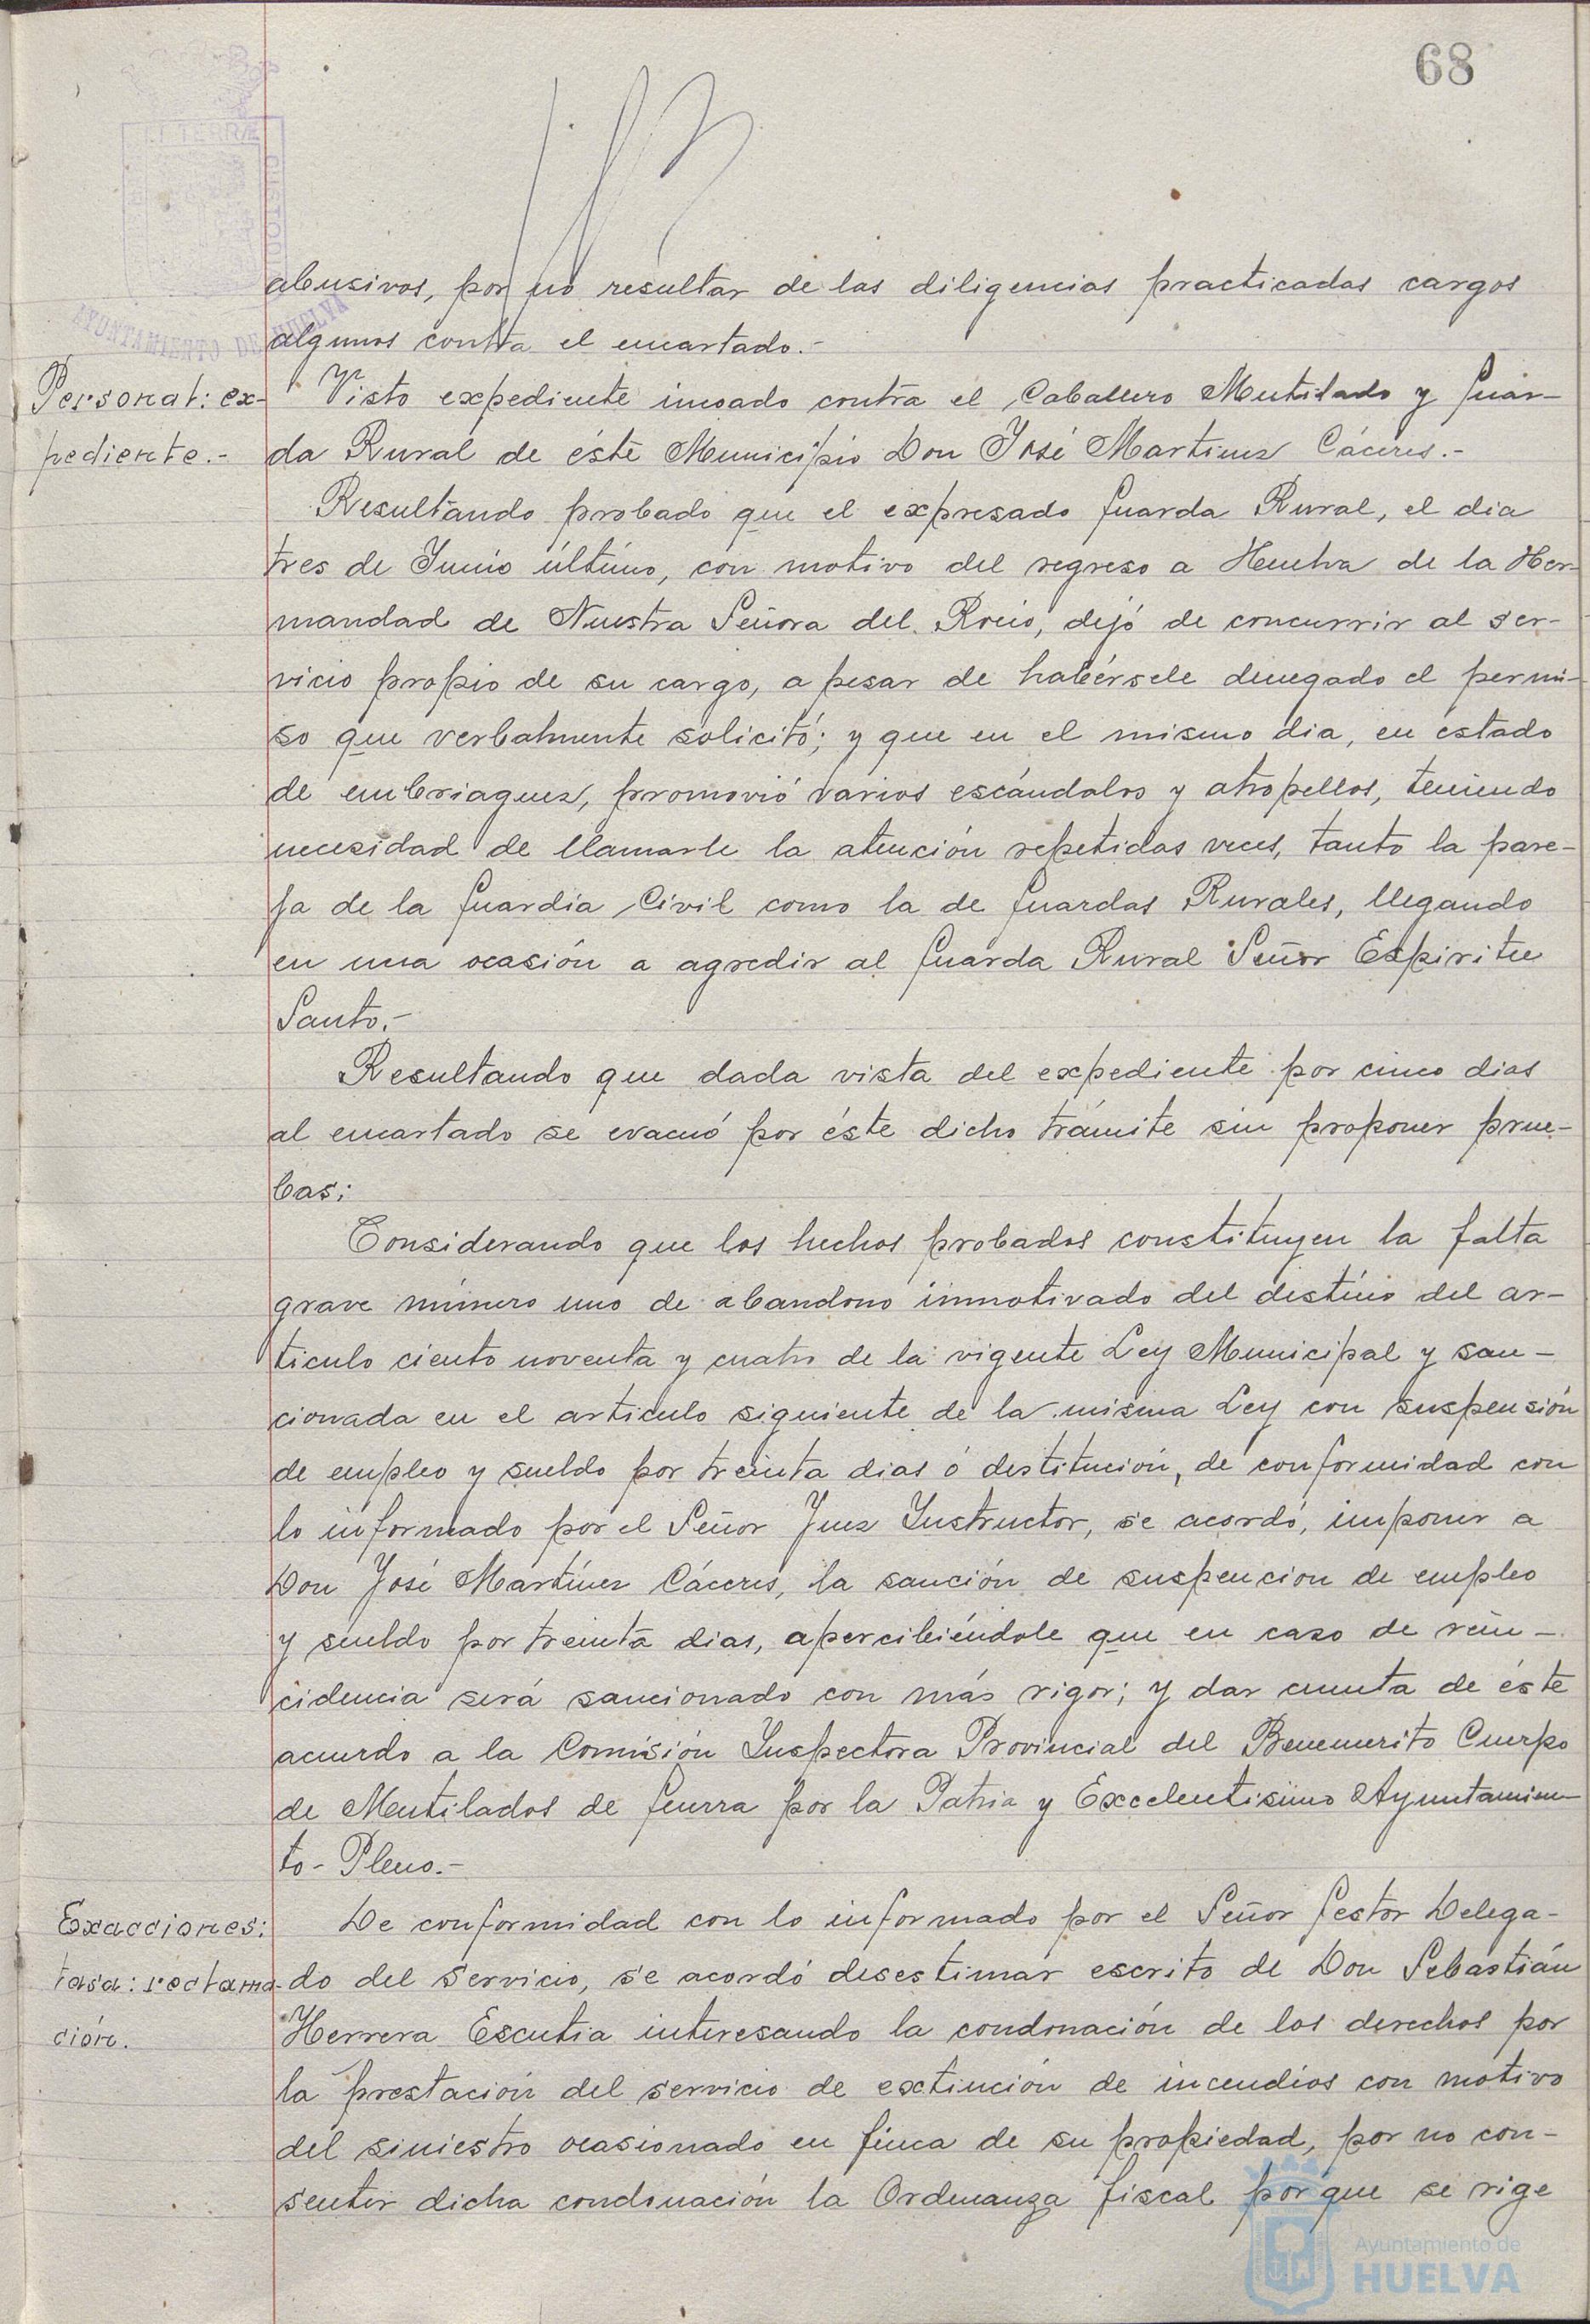 68
abusivos, por no resultar de las diligencias practicadas cargos
algunos contra el encartado.-
Personal: ex-
pediente.-
Visto expediente incoado contra el Caballero Mutilado y Guar-
da Rural de éste Municipio Don José Martinez Cáceres.-
Resultando probado que el expresado Guarda Rural, el dia
tres de Junio último, con motivo del regreso a Huelva de la Her-
mandad de Nuestra Señora del Rocio, dejó de concurrir al ser-
vicio propio de su cargo, a pesar de habérsele denegado el permi-
so que verbalmente solicitó; y que en el mismo dia, en estado
de embriaguez, promovió varios escándalos y atropellos, teniendo
necesidad de llamarle la atención repetidas veces, tanto la pare-
ja de la Guardia Civil como la de Guardas Rurales, llegando
en una ocasión a agredir al Guarda Rural Señor Espiritu
Santo.-
Resultando que dada vista del expediente por cinco dias
al encartado se evacuó por éste dicho trámite sin proponer prue-
bas;
Considerando que los hechos probados constituyen la falta
grave número uno de abandono inmotivado del destino del ar-
ticulo ciento noventa y cuatro de la vigente Ley Municipal y san-
cionada en el articulo siguiente de la misma Ley con suspensión
de empleo y sueldo por treinta dias ó destitución, de conformidad con
lo informado por el Señor Juez Instructor, se acordó, imponer a
Don José Martínez Cáceres, la sanción de suspencion de empleo
y sueldo por treinta dias, apercibiéndole que en caso de rein-
cidencia será sancionado con más rigor; y dar cuenta de éste
acuerdo a la Comisión Inspectora Provincial del Benemerito Cuerpo
de Mutilados de Guerra por la Patria y Excelentisimo Ayuntamien-
to-Pleno.-
Exacciones:
tasa: reclama-
ción.
De conformidad con lo informado por el Señor Gestor Delega-
do del Servicio, se acordó desestimar escrito de Don Sebastián
Herrera Escutia interesando la condonación de los derechos por
la prestación del servicio de extinción de incendios con motivo
del siniestro ocasionado en finca de su propiedad, por no con-
sentir dicha condonación la Ordenanza fiscal porque se rige
AYUNTAMIENTO DE HUELVA
Ayuntamiento de
HUELVA